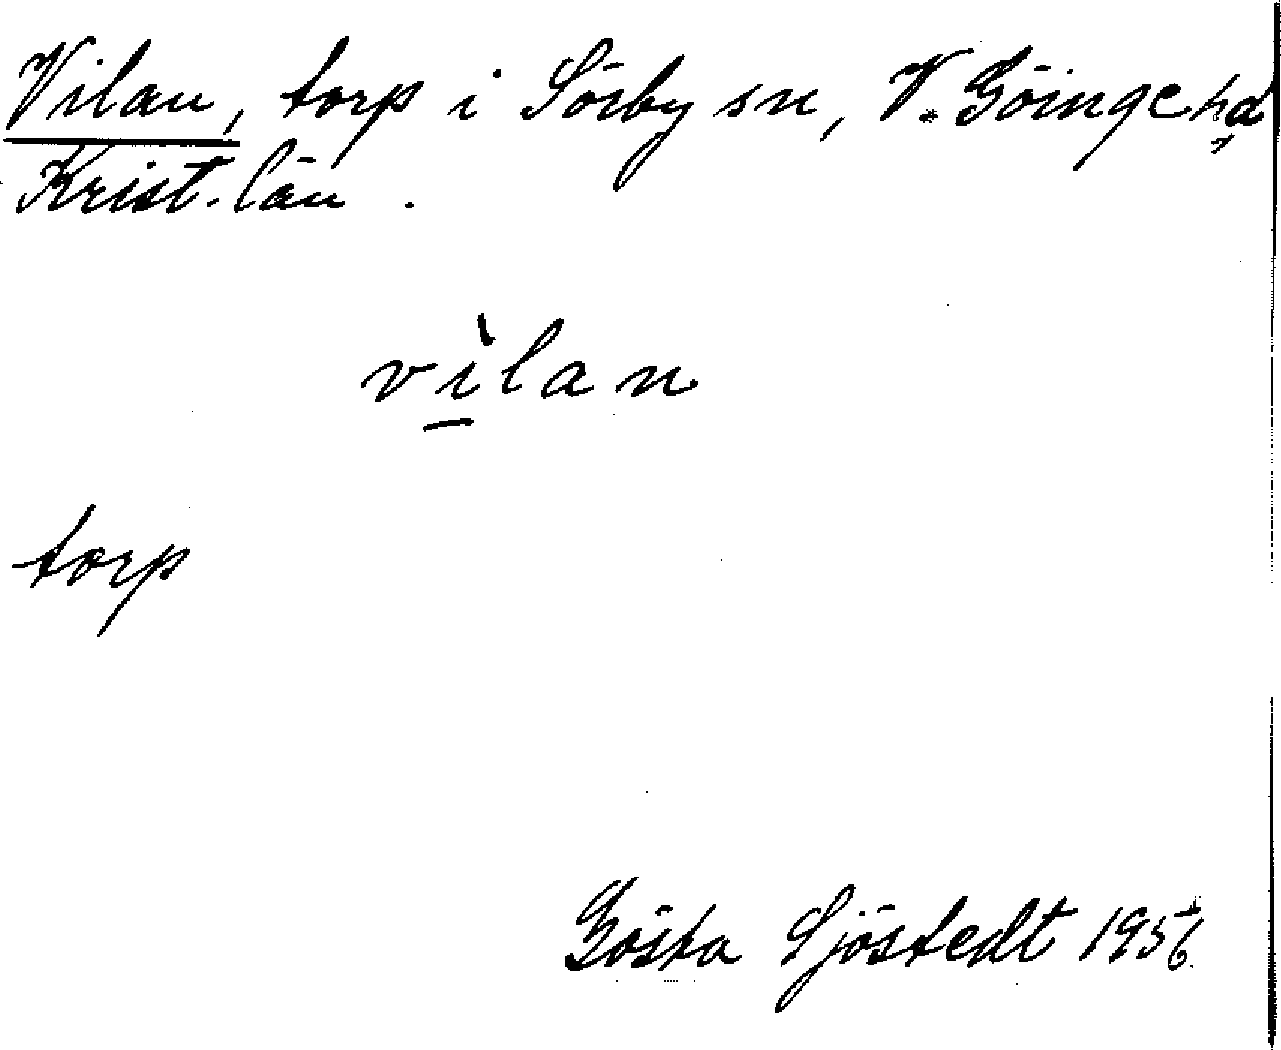 Vilan, torp i Sörby sn, V. Göinge hd,
Krist. län.
vìlan
torp
Gösta Sjöstedt 1956.